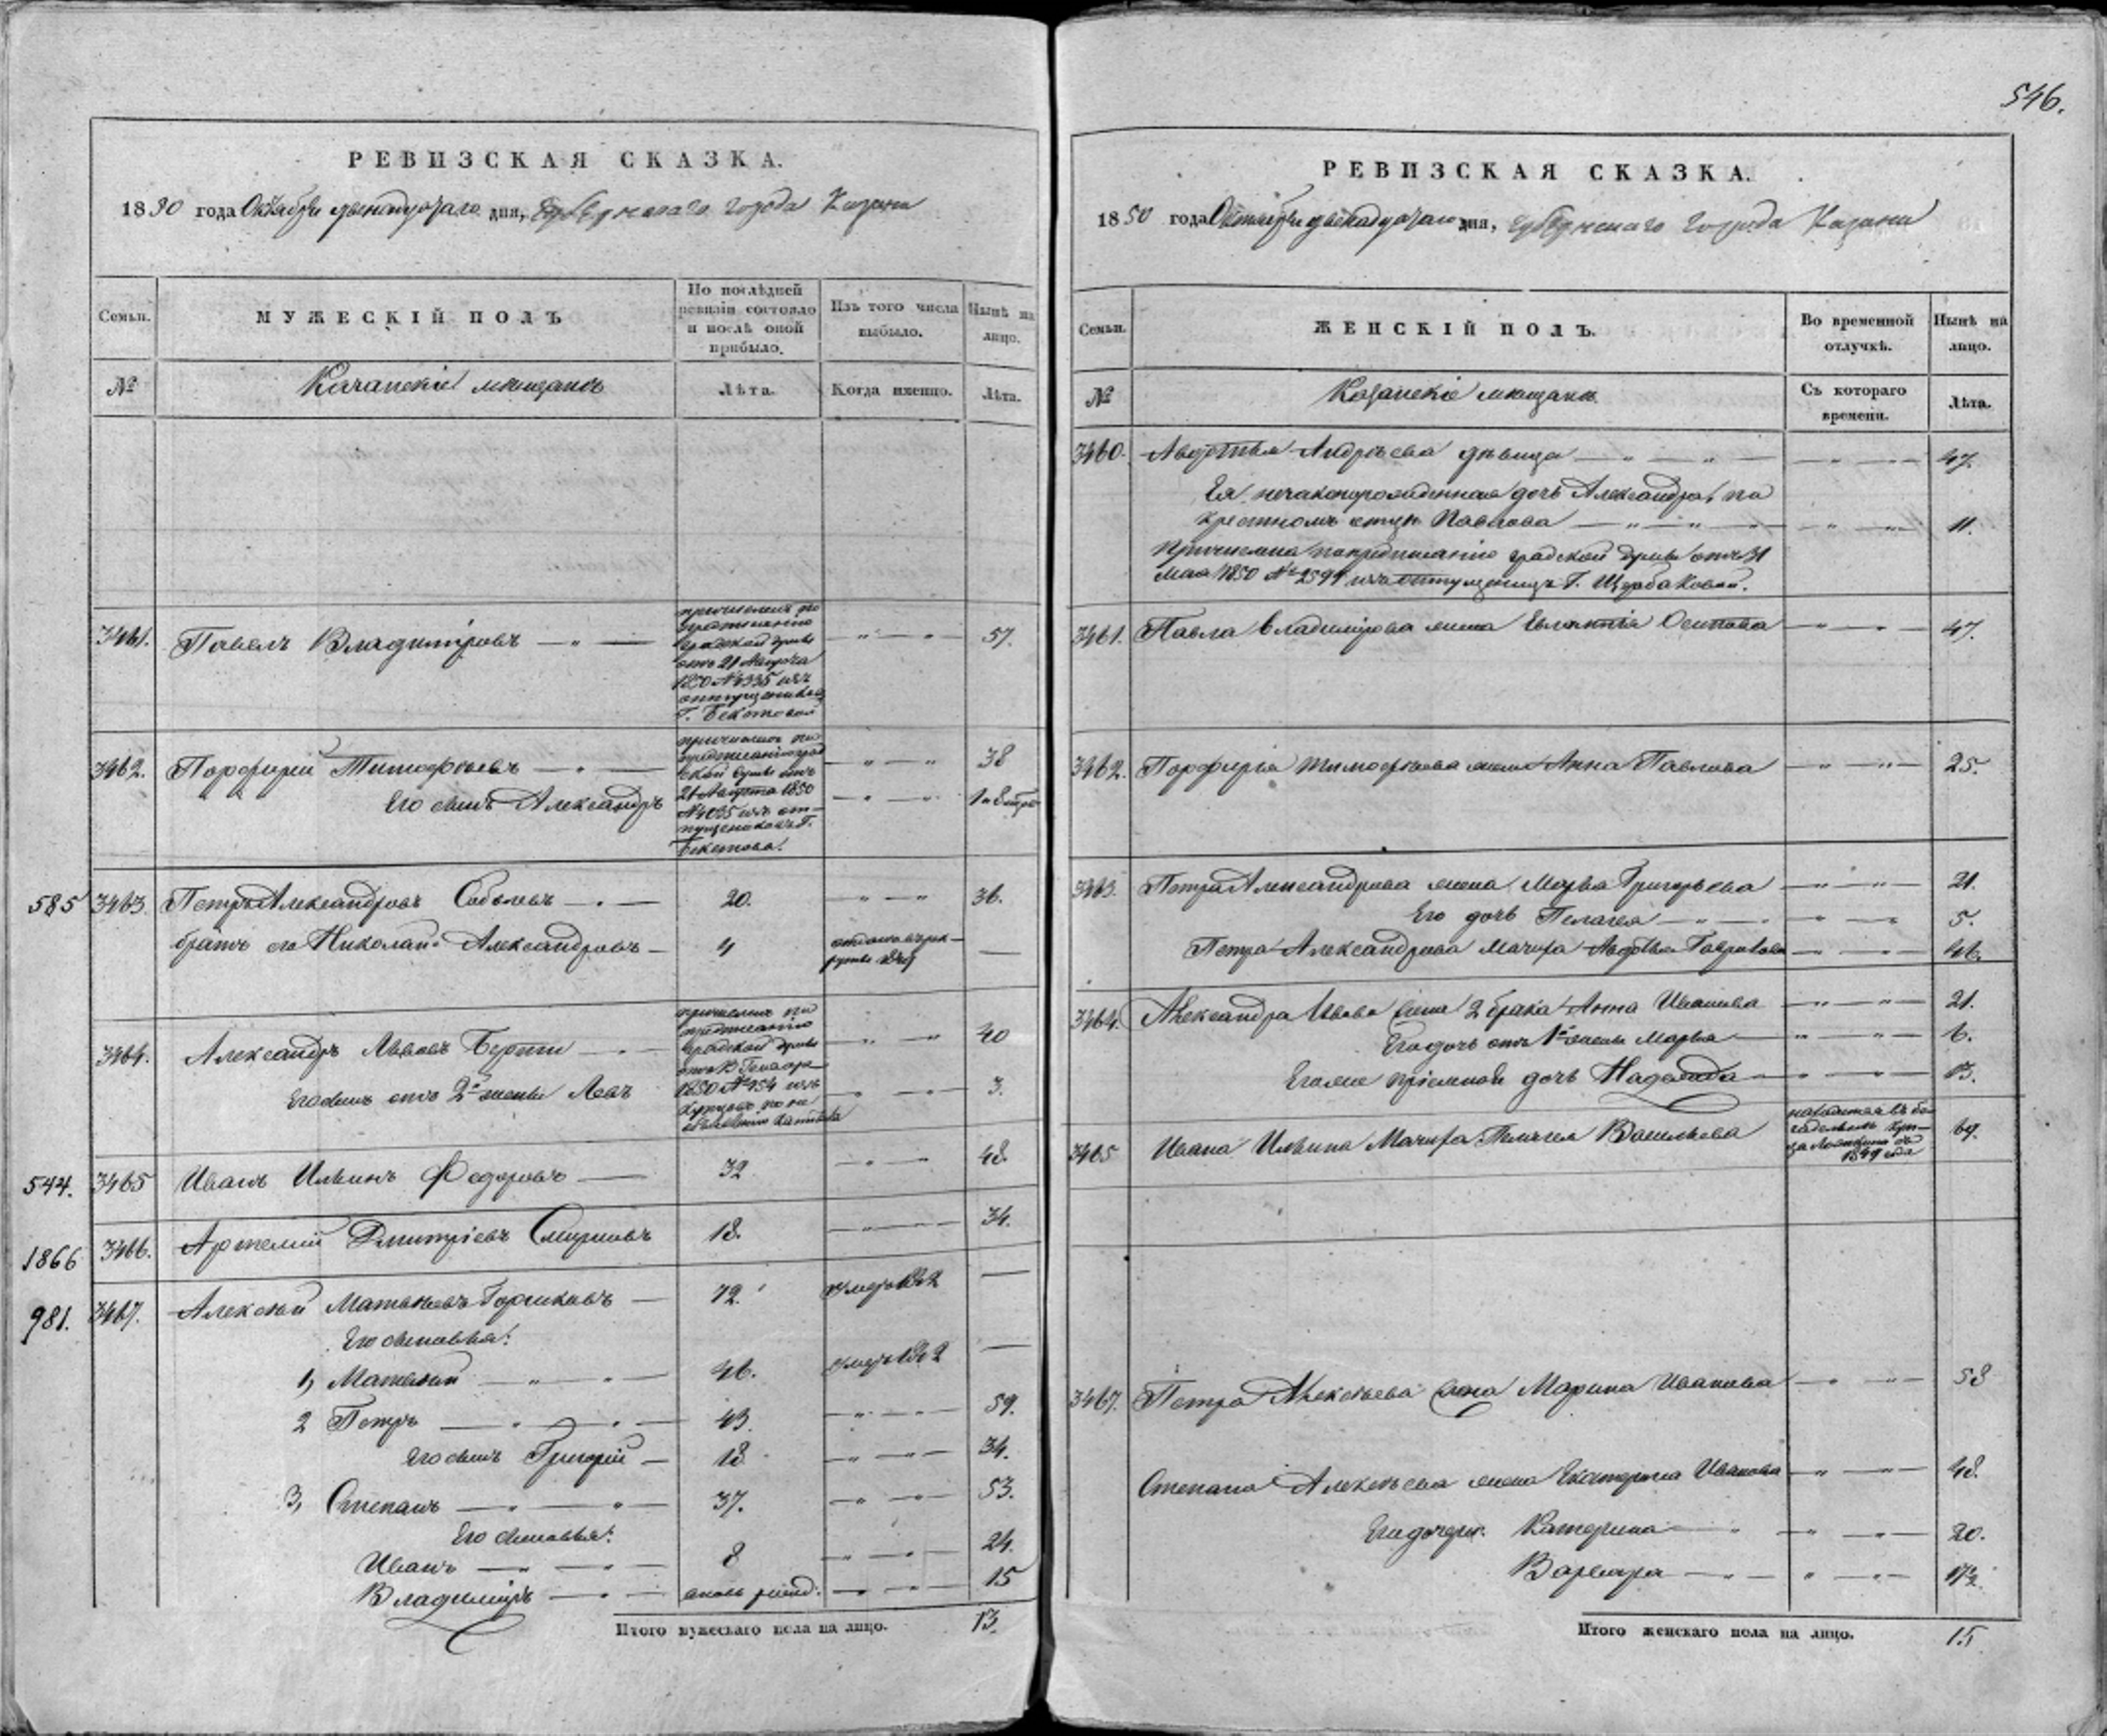 РЕВИЗСКАЯ СКАЗКА.
1850 года Октября двенадцатаго дня, Губернскаго города Казани
Семьи.
МУЖЕСКІЙ ПОЛЪ
По послѣдней ревизіи состояло и послѣ оной прибыло.
Изъ того числа выбыло.
Нынѣ на лицо.
№
Казанскіе мѣщане
Лѣта.
Когда именно.
Лѣта.
3461. Павелъ Владиміровъ — " — " — " 57.
причисленъ по
предписанію
градской думы
отъ 21 Августа
1850 № 4335 изъ
отпущенниковъ
Г. Бекетовой
3462. Порфирій Тимофѣевъ — " — " — " 38
Его сынъ Александръ — " — "
причислены по
предписанію град
ской думы отъ
21 Августа 1850
изъ от-
пущенниковъ Г.
Бекетова.
585 3463. Петръ Александровъ Соболевъ — " — 20. " — " 36.
братъ его Николай Александровъ — 4 отданъ въ рек-
руты —
3464. Александръ Львовъ Берти — " — " — " 40
Его сынъ отъ 2й жены Левъ — " — " 3.
причисленъ по
предписанію
градской думы
1850 № 454 изъ
купцовъ по не
объявленію капитала
544. 3465 Иванъ Ильинъ Федоровъ — 32 — " — " 48.
1866 3466. Артемій Дмитріевъ Смирновъ 18. — " — 34.
981. 3467. Алексѣй Матвѣевъ Горшковъ — 72. умеръ —
Его сыновья:
1, Матвѣй — " — " — 46. умеръ —
2 Петръ — " — " — 43. — " — " — 59.
Его сынъ Григорій — 18. — " — " — 34.
3, Степанъ — " — " — 37. — " — " — 53.
Его сыновья:
Иванъ — " — " — 8 — " — " — 24.
Владиміръ — " — вновь рожд. — " — " — 15
Итого мужескаго пола на лицо. 13.
546.
РЕВИЗСКАЯ СКАЗКА.
1850 года Октября двенадцатаго дня, Губернскаго города Казани
Семьи.
ЖЕНСКІЙ ПОЛЪ.
Во временной отлучкѣ.
Нынѣ на лицо.
№
Казанскіе мѣщане
Съ котораго времени.
Лѣта.
3460. Авдотья Андрѣева дѣвица — " — " — " — 47.
Ея незаконнорожденная дочь Александра, по
крестномъ отцѣ Павлова — " — " — " — 11.
Причислена по предписанію градской думы отъ 31
Мая 1850 № 2594 изъ отпущенницъ Г. Щербаковой.
3461. Павла Владимірова жена Евлампія Осипова — " — " — 47.
3462. Порфирія Тимофѣева жена Анна Павлова — " — " — 25.
3463. Петра Александрова жена Марья Григорьева — " — " — 21.
Его дочь Пелагея — " — " — " — 5.
Петра Александрова Мачиха Авдотья Гаврилова — " — " — 46.
3464. Александра Львова жена 2 брака Анна Иванова — " — " — 21.
Его дочь отъ 1й жены Марья — " — " — 6.
Его же пріемная дочь Надежда — " — " — 13.
3465 Ивана Ильина Мачиха Пелагея Васильева 69.
находится въ бо-
гадельнѣ куп-
ца
1849 года
3467. Петра Алексѣева жена Марина Иванова — " — " — 58
Степана Алексѣева жена Екатерина Иванова — " — " — 48.
Его дочери: Катерина — " — " — " — 20.
Варвара — " — " — " — 17½.
Итого женскаго пола на лицо. 15